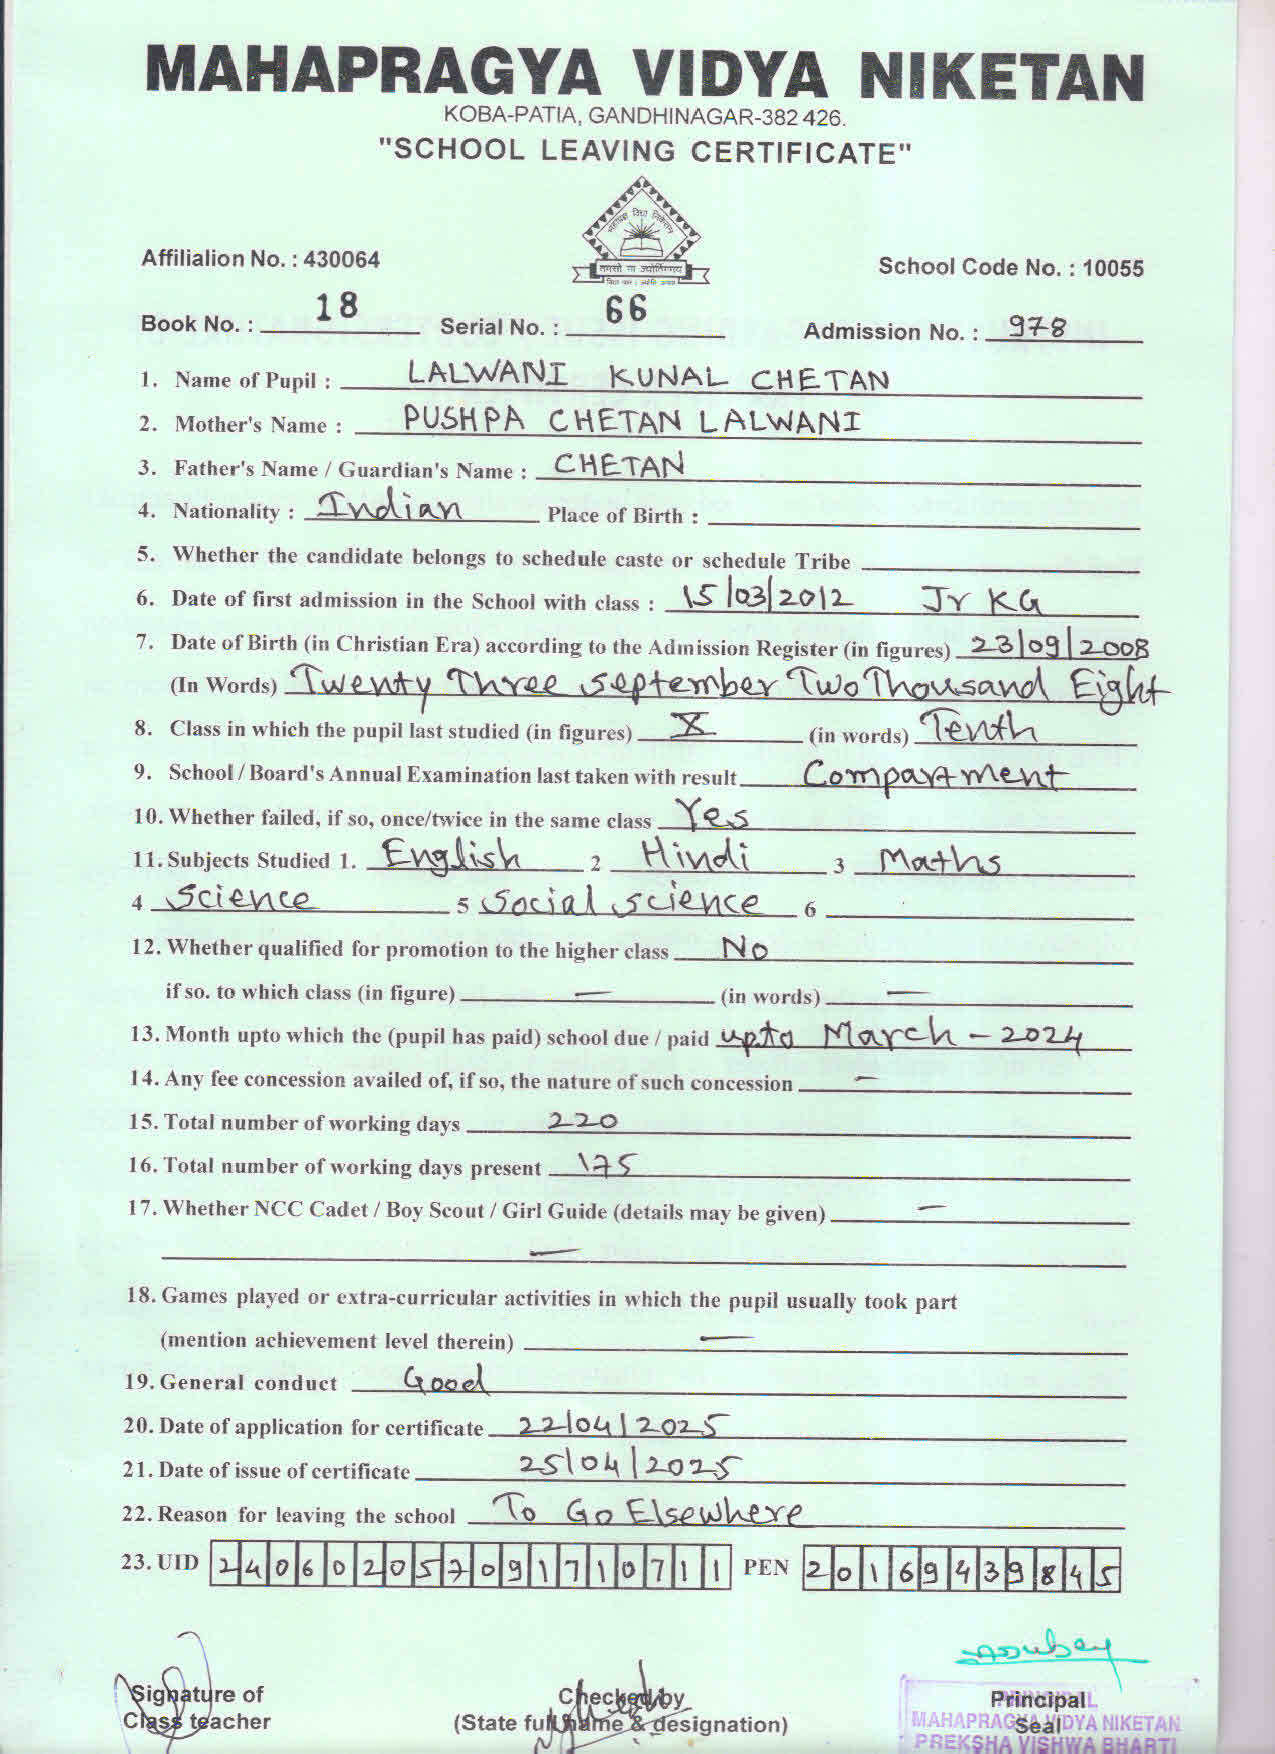 MAHAPRAGYA VIDYA NIKETAN
KOBA-PATIA, GANDHINAGAR-382 426.
"SCHOOL LEAVING CERTIFICATE"
महाप्रज्ञ विद्या निकेतन
तमसो मा ज्योतिर्गमय
Affilialion No. : 430064
School Code No. : 10055
Book No. : 18 Serial No. : 66 Admission No. : 978
1. Name of Pupil : LALWANI KUNAL CHETAN
2. Mother's Name : PUSHPA CHETAN LALWANI
3. Father's Name / Guardian's Name : CHETAN
4. Nationality : Indian Place of Birth :
5. Whether the candidate belongs to schedule caste or schedule Tribe
6. Date of first admission in the School with class : 15/03/2012 Jr KG
7. Date of Birth (in Christian Era) according to the Admission Register (in figures) 23/09/2008
(In Words) Twenty Three September Two Thousand Eight
8. Class in which the pupil last studied (in figures) X (in words) Tenth
9. School / Board's Annual Examination last taken with result Compartment
10. Whether failed, if so, once/twice in the same class Yes
11. Subjects Studied 1. English 2 Hindi 3 Maths
4 Science 5 Social science 6
12. Whether qualified for promotion to the higher class No
if so. to which class (in figure) — (in words) —
13. Month upto which the (pupil has paid) school due / paid upto March - 2024
14. Any fee concession availed of, if so, the nature of such concession —
15. Total number of working days 220
16. Total number of working days present 175
17. Whether NCC Cadet / Boy Scout / Girl Guide (details may be given) —
—
18. Games played or extra-curricular activities in which the pupil usually took part
(mention achievement level therein) —
19. General conduct Good
20. Date of application for certificate 22/04/2025
21. Date of issue of certificate 25/04/2025
22. Reason for leaving the school To Go Elsewhere
23. UID 240602057091710711 PEN 20169439845
Signature of
Class teacher
Checked by
(State full name & designation)
Principal
Seal
PRINCIPAL
MAHAPRAGYA VIDYA NIKETAN
PREKSHA VISHWA BHARTI